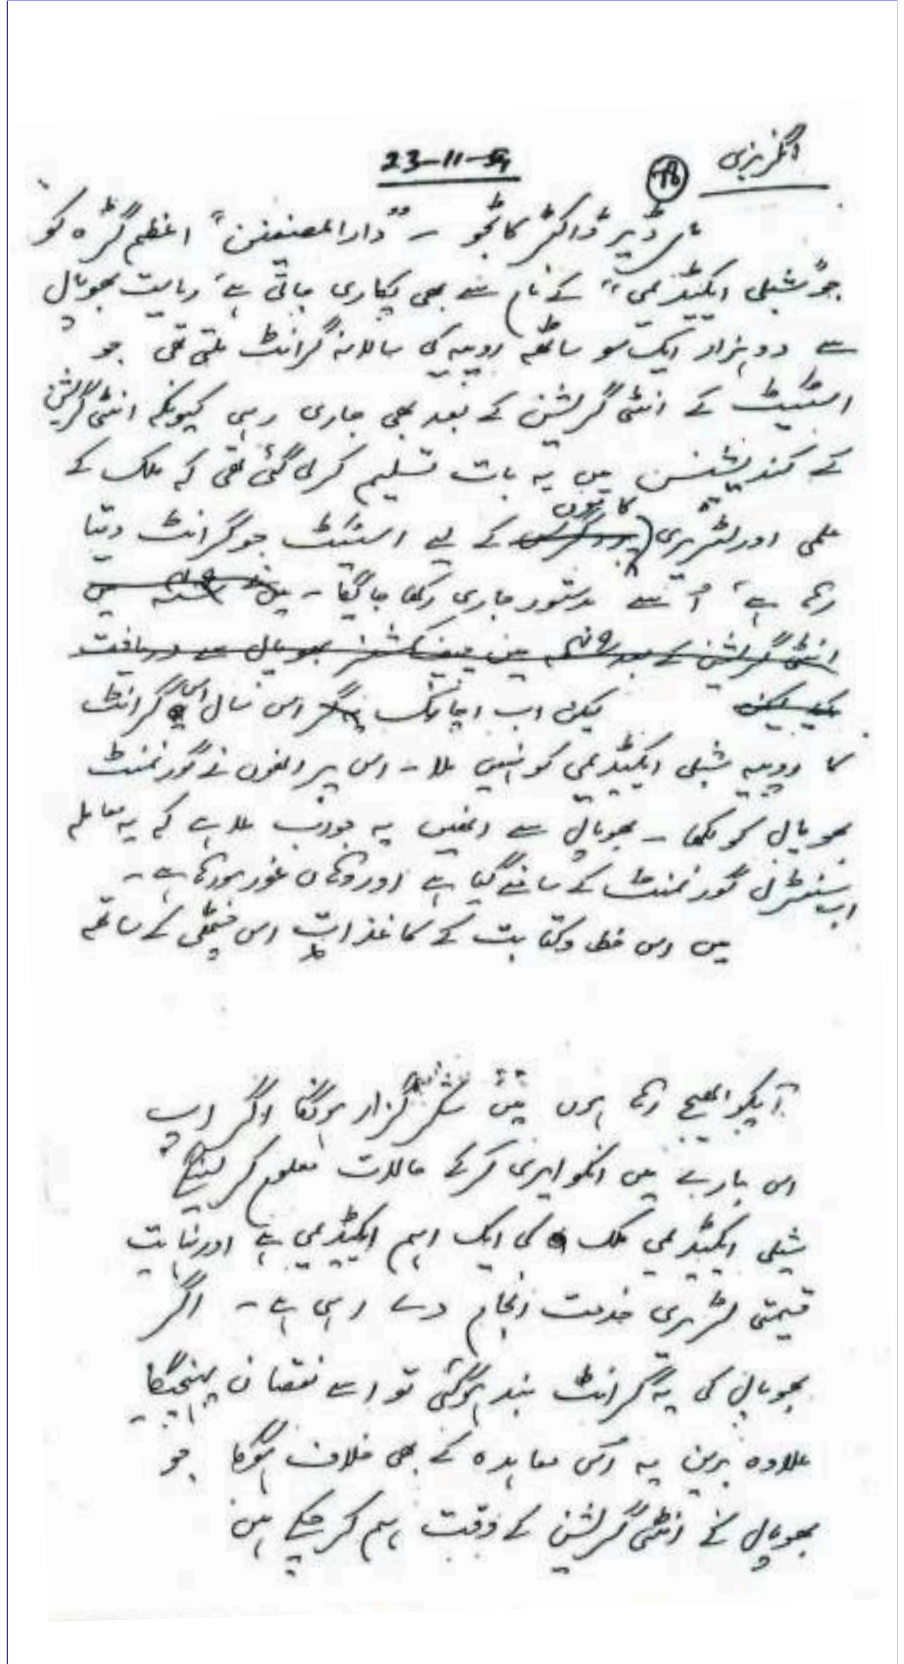 انگریزی
23-11-54
مائی ڈیر ڈاکٹر کاٹجو ۔ "دارالمصنفین" اعظم گڑہ کو
جو "شبلی ایکیڈیمی" کے نام سے بھی پکاری جاتی ہے، ریاست بھوپال
سے دو ہزار ایک سو ساٹھ روپیہ کی سالانہ گرانٹ ملتی تھی جو
اسٹیٹ کے انٹی گریشن کے بعد بھی جاری رہی کیونکہ انٹی گریشن
کے کنڈیشنس میں یہ بات تسلیم کر لی گئی تھی کہ ملک کے
علمی اور لٹریری کاموں کے لیے اسٹیٹ جو گرانٹ دیتا
رہا ہے، اُسے بدستور جاری رکھا جائیگا ۔
انٹی گریشن کے بعد میں چیف کمشنر بھوپال سے دریافت
کیا لیکن لیکن اب اچانک اس سال اس گرانٹ
کا روپیہ شبلی ایکیڈیمی کو نہیں ملا ۔ اس پر انھوں نے گورنمنٹ
بھوپال کو لکھا ۔ بھوپال سے انھیں یہ جواب ملا ہے کہ یہ معاملہ
اب سنٹرل گورنمنٹ کے سامنے گیا ہے اور وہاں غور ہو رہا ہے ۔
میں اس خط و کتابت کے کاغذات اس چٹھی کے ساتھ
آپکو بھیج رہا ہوں میں شکر گزار ہونگا اگر آپ
اس بارے میں انکوایری کرکے حالات معلوم کر لینگے
شبلی ایکیڈیمی ملک کی ایک اہم ایکیڈیمی ہے اور نہایت
قیمتی لٹریری خدمت انجام دے رہی ہے ۔ اگر
بھوپال کی یہ گرانٹ بند ہوگئی تو اسے نقصان پہنچیگا
علاوہ بریں یہ اُس معاہدہ کے بھی خلاف ہوگا جو
بھوپال کے انٹی گریشن کے وقت ہم کر چکے ہیں